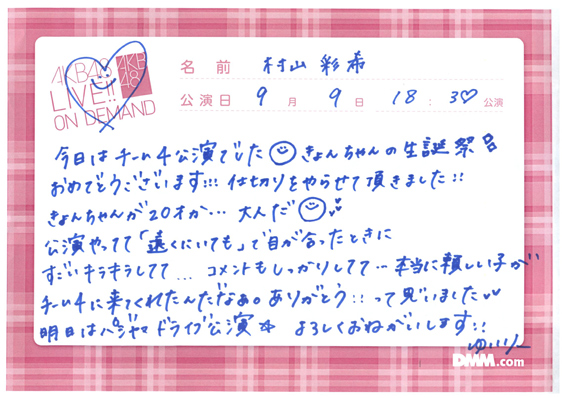 AKB48
LIVE!!
ON DEMAND
AKB
48
名前 村山 彩希
公演日 9月 9日 18:30公演
今日はチーム4公演でした きょんちゃんの生誕祭
おめでとうございます!!! 仕切りをやらせて頂きました!!
きょんちゃんが20才か… 大人だ
公演やってて「遠くにいても」で目が合ったときに
すごいキラキラしてて… コメントもしっかりしてて…本当に頼もしい子が
チーム4に来てくれたんだなぁ。ありがとう!!って思いました
明日はパジャマドライブ公演☆ よろしくおねがいします!!
ゆいりー
DMM.com